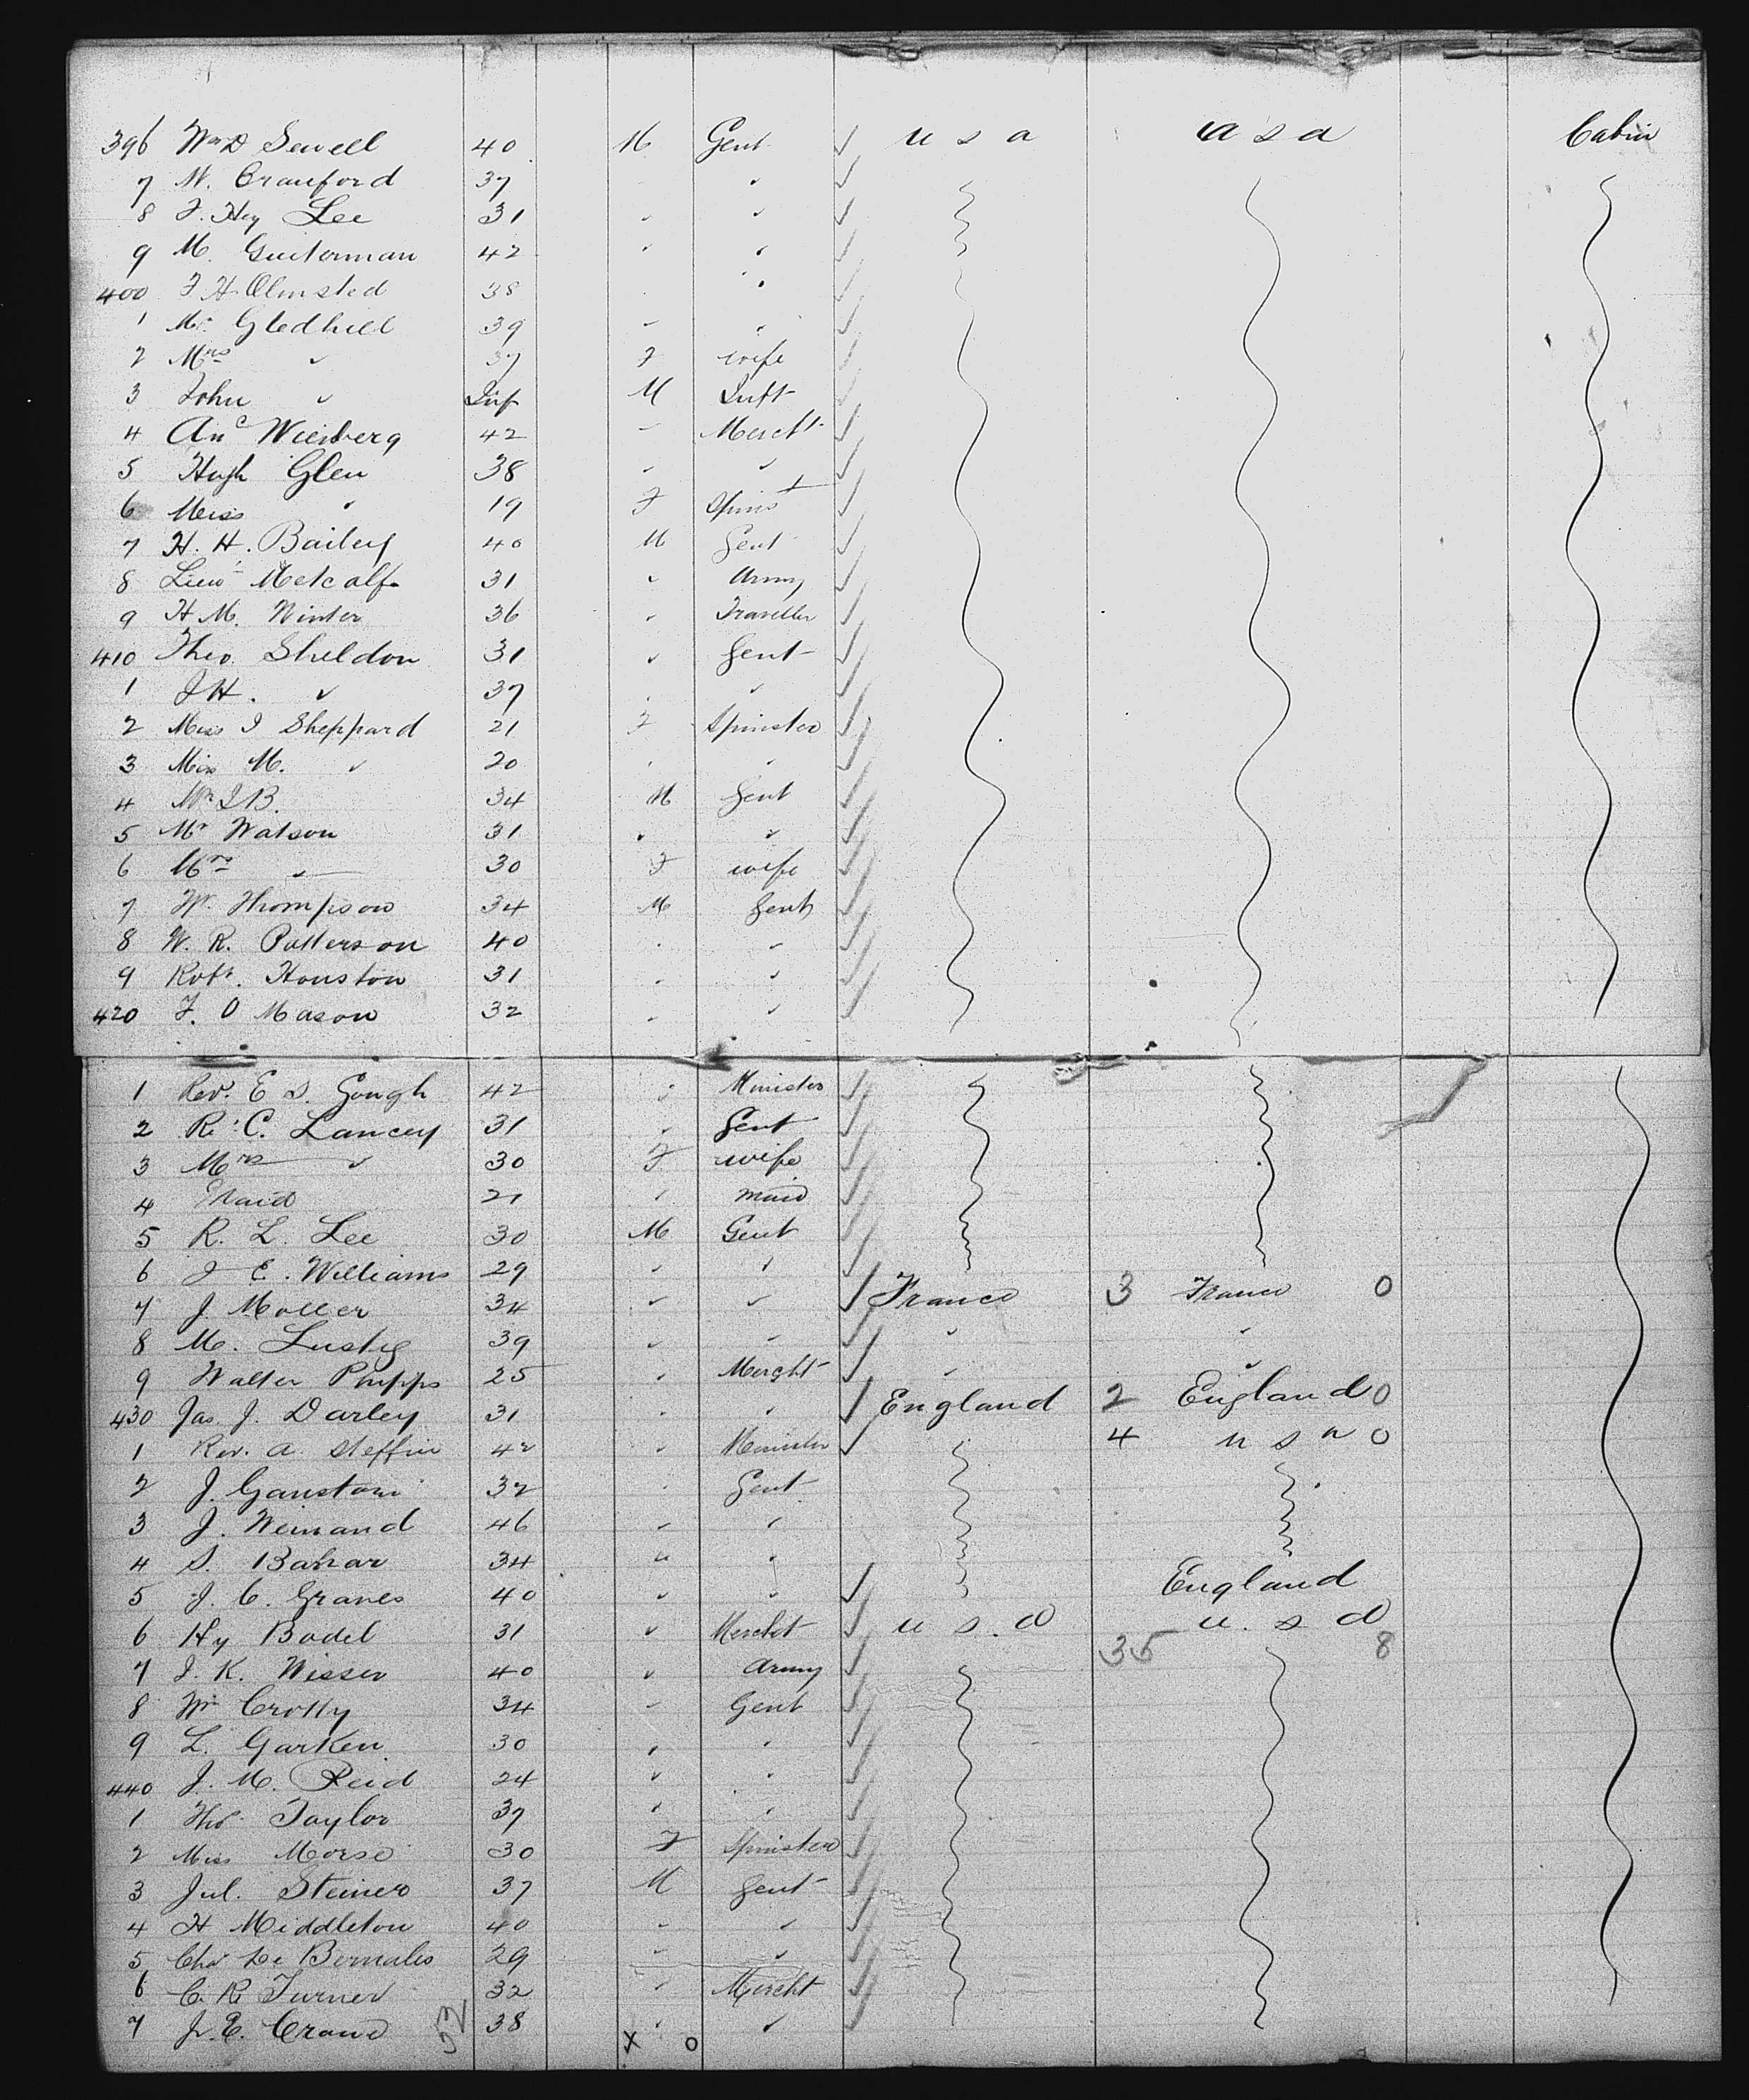 396 Wm D Sewell 40 M Gent ✓ u s a u s a Cabin
7 W. Crauford 37 ✓ ✓
8 J. Hey Lee 31 ✓ ✓ ✓
9 M. Guiterman 42 ✓ ✓
400 F H Olmsted 38 ✓
1 Mr Gledhill 39 ✓
2 Mrs ✓ 37 F wife ✓
3 John ✓ Inf M Inft ✓
4 Anc Wiesberg 42 Mercht ✓
5 Hugh Glen 38 ✓ ✓ ✓
6 Miss ✓ 19 F Spinst ✓
7 H. H. Bailey 40 M Gent ✓
8 Lieut Metcalf 31 ✓ Army ✓
9 H M. Winter 36 Traveller ✓
410 Theo. Sheldon 31 ✓ Gent ✓
1 J H. ✓ 37 ✓ ✓
2 Miss I Sheppard 21 F Spinster ✓
3 Miss M. ✓ 20 ✓
4 Mr J B. 34 M Gent ✓
5 Mr Watson 31 ✓ ✓
6 Mrs ✓ 30 F wife ✓
7 Wm Thompson 34 M Gent ✓
8 W. R. Patterson 40 ✓
9 Robt. Houston 31 ✓ ✓
420 F. O Mason 32 ✓ ✓
1 Revd. E S. Gough 42 Minister ✓
2 R. C. Lancey 31 Gent ✓
3 Mrs ✓ 30 F wife ✓
4 Maid 21 maid ✓
5 R. L. Lee 30 M Gent ✓
6 J E. Williams 29 ✓ ✓
7 J. Moller 34 ✓ ✓ ✓ France 3 France 0
8 M. Lustig 39 ✓ ✓ ✓ ✓
9 Walter Phipps 25 Mercht ✓ ✓ ✓
430 Jas J. Darley 31 ✓ England 2 England 0
1 Rev. A. Steffin 42 Minister ✓ 4 u s a 0
2 J. 32 Gent
3 J. Weinand 46
4 S. 34
5 J. C. Graves 40 ✓ ✓ ✓ England
6 Hy Badel 31 ✓ Mercht ✓ u s. a u. s a
7 J. K. Wisser 40 ✓ Army ✓ 35 8
8 Wm Crotty 34 Gent ✓
9 L. Garken 30 ✓
440 J. M. Reid 24 ✓ ✓
1 Tho Taylor 37 ✓
2 Miss Morse 30 F Spinster ✓
3 Jul. Steiner 37 M Gent ✓
4 H Middleton 40 ✓ ✓
5 Chas De Bernales 29 ✓ ✓
6 C. R Turner 32 Mercht ✓
7 J. E. Crane 52 38 ✓ ✓
X 0